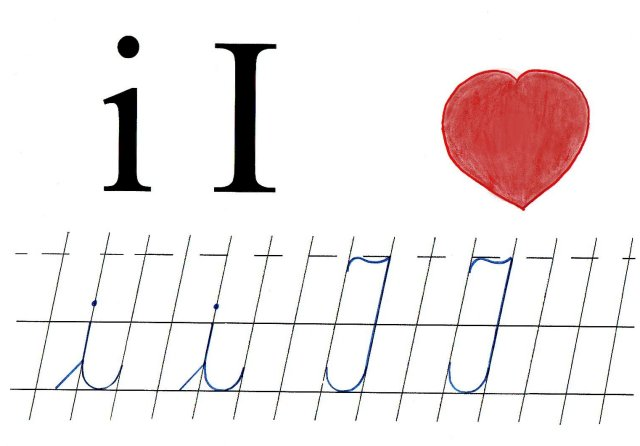 i I
i i I I